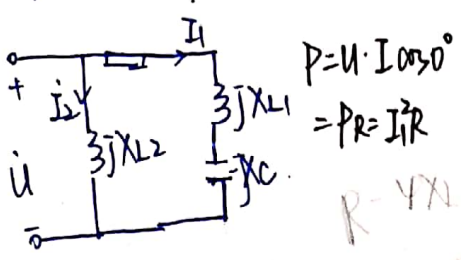 I₁
+
İ₂
jXL1
jXL2
U̇
-jXC
-
P=U·I cos0°
=PR=I₁²R